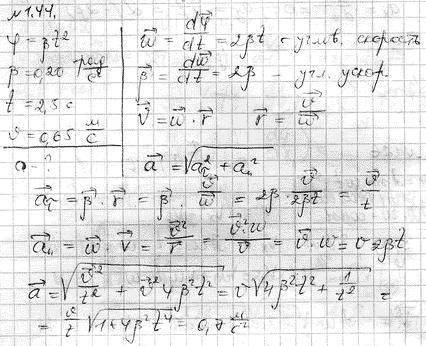 №1.44.
φ = βt²
β = 0,20 рад/с²
t = 2,5 с
𝜗 = 0,65 м/с
a - ?
w⃗ = dφ⃗/dt = 2βt - углов. скорость
β⃗ = dw⃗/dt = 2β - угл. ускор.
V⃗ = w⃗ · r⃗ r⃗ = 𝜗⃗/w⃗
a⃗ = √(a_τ² + a_n²)
a⃗_τ = β⃗ · r⃗ = β⃗ · 𝜗⃗/w⃗ = 2β 𝜗⃗/2βt = 𝜗⃗/t
a⃗_n = w⃗ · V⃗ = 𝜗⃗²/r⃗ = 𝜗⃗²·w/𝜗 = 𝜗⃗ · w = v 2βt
a⃗ = √(𝜗⃗²/t² + 𝜗⃗² 4β²t²) = v √(4β²t² + 1/t²) =
= 𝜗/t √(1 + 4β²t⁴) = 0,7 м/с²